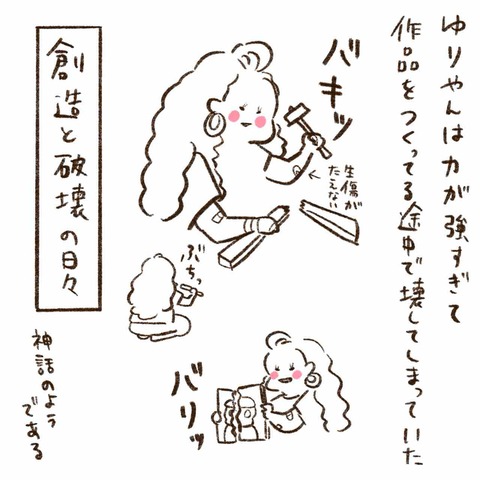 ゆりやんは力が強すぎて
作品をつくってる途中で壊してしまっていた
バキッ
生傷が
たえない
ぶちっ
バリッ
創造と破壊の日々
神話のよう
である